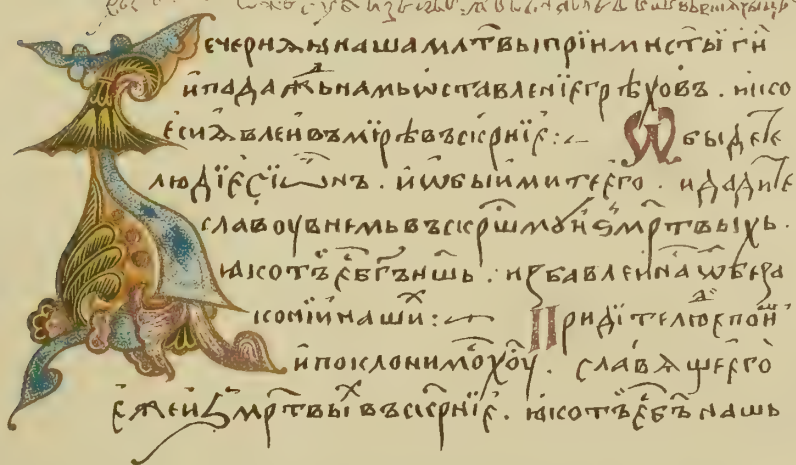 ечернѧꙗ наша мл҃твы прїими ст҃ыи г҃и
и подаждь намь ѡставленїе грѣховъ . ꙗко
еси ꙗвлеи въ мїрѣ въскр҃нїе :~ Ѡбыдѣте
людїе сїѡнъ . и ѡбыимите его . и дадите
славоу в немь въскр҃шмоу из мр҃твыхь .
ꙗко тъ е б҃гъ нш҃ь . избавлеи на ѿ беза
конїи наши :~ Придїте людⷷ поиⷨ
и поклонимⷭ х҃оу . славѧще его
еже из мр҃твыⷯ въскр҃нїе . ꙗко тъ е б҃ъ нашь